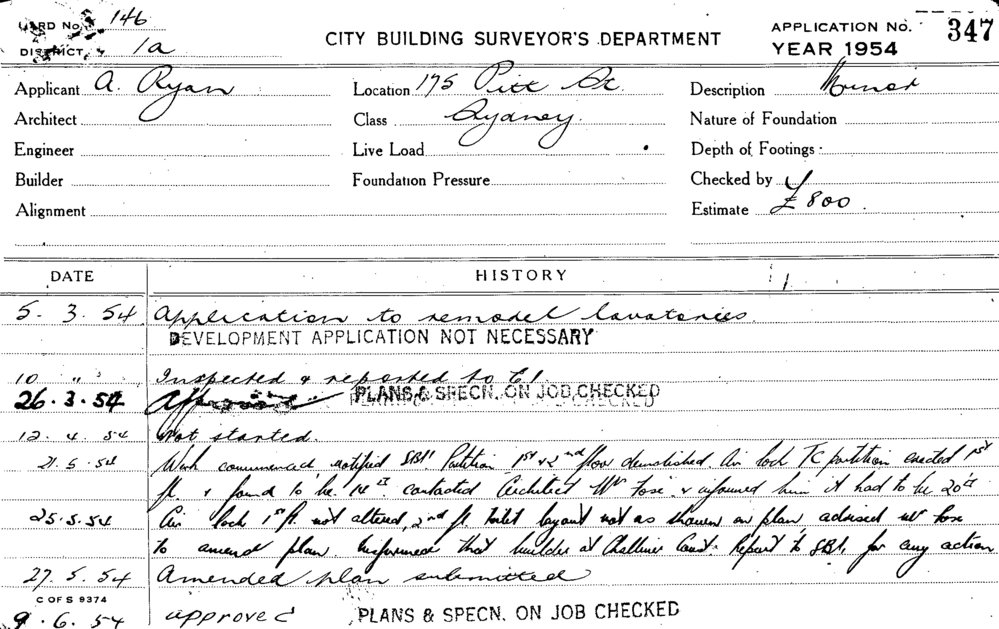 CARD No. 146
DISTRICT 1a
CITY BUILDING SURVEYOR'S DEPARTMENT
APPLICATION No. 347
YEAR 1954
Applicant A. Ryan
Location 175 Pitt St.
Description Minor
Architect
Class Sydney.
Nature of Foundation
Engineer
Live Load
Depth of Footings
Builder
Foundation Pressure
Checked by
Alignment
Estimate £800.
DATE HISTORY
5. 3. 54 Application to remodel lavatories.
DEVELOPMENT APPLICATION NOT NECESSARY
10 " " Inspected & reported to
26.3.54 Approved PLANS & SPECN. ON JOB CHECKED
12. 4. 54 Not started.
21.5.54 Work commenced notified SBI Partition 1st & 2nd floor demolished. Air lock TC partition erected 1st
fl. & found to be 14 contacted Architect Mr Fose & informed him it had to be 20
25.5.54 Air lock 1st fl. not altered, 2nd fl. toilet layout not as shown on plan advised Mr Fose
to amend plan. Informed that builder at Court. Report to SBI, for any action
27. 5. 54 Amended plan submitted
C OF S 9374
9. 6. 54 approved PLANS & SPECN. ON JOB CHECKED